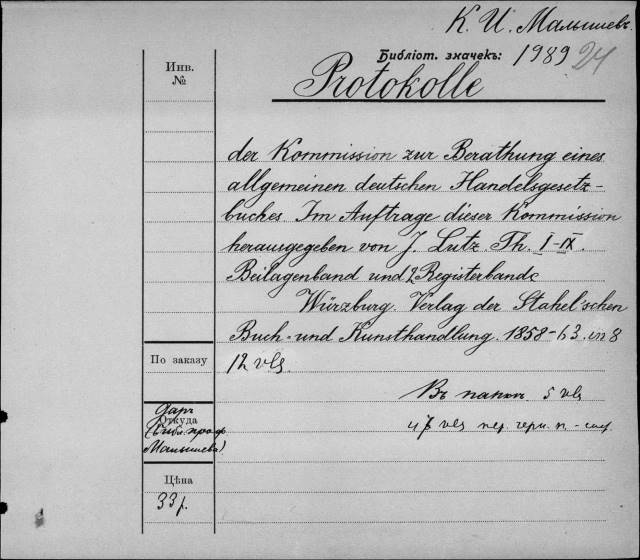 К. И. Малышевъ.
Инв.
№
Библіот. значекъ: 1989 24
Protokolle
der Kommission zur Berathung eines
allgemeinen deutschen Handelsgesetz-
buches. Im Auftrage dieser Kommission
herausgegeben von J. Lutz. Th. I-IX.
Beilagenband und 2 Registerbande
Würzburg. Verlag der Stahel'schen
Buch- und Kunsthandlung. 1858-63. in 8
По заказу
12 vls.
Въ папкѣ 5 vls
и 7 vls пер. черн. п.-
Даръ
Откуда
(Библ. проф.
Малышева)
Цѣна
33 р.